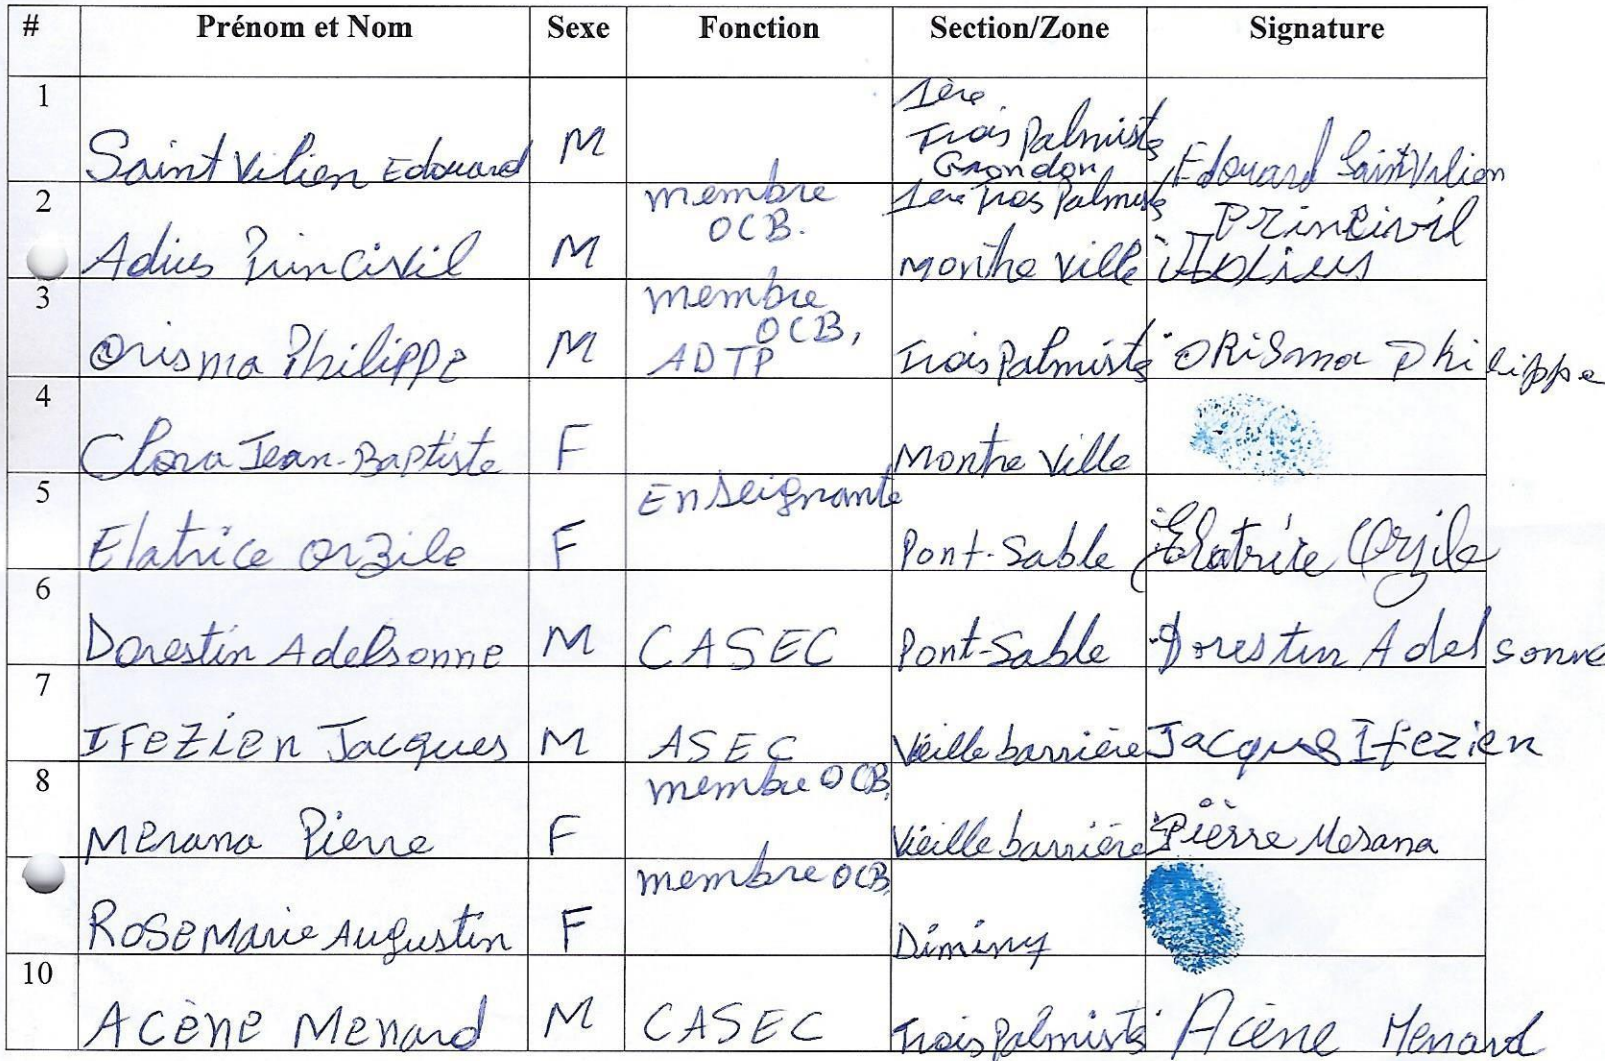 # Prénom et Nom Sexe Fonction Section/Zone Signature
1 Saint Vilien Edouard M 1ère Trois Palmiste Grondon Edouard Saint Vilien
2 Adius Princivil M membre OCB. 1ère Trois Palmiste Monthe Ville Princivil Adius
3 Orisma Philippe M membre OCB, ADTP Trois Palmiste ORiSma Philippe
4 Clora Jean-Baptiste F Monthe Ville
5 Elatrice Orzile F Enseignante Pont-Sable Elatrice Orzile
6 Dorestin Adelsonne M CASEC Pont-Sable Dorestin Adelsonne
7 IFEZIEn Jacques M ASEC Vieille barrière Jacques Ifezien
8 Merana Pierre F membre OCB, Vieille barrière Pierre Merana
RoseMarie Augustin F membre OCB, Diminy
10 Acène Menard M CASEC Trois Palmiste Acène Menard